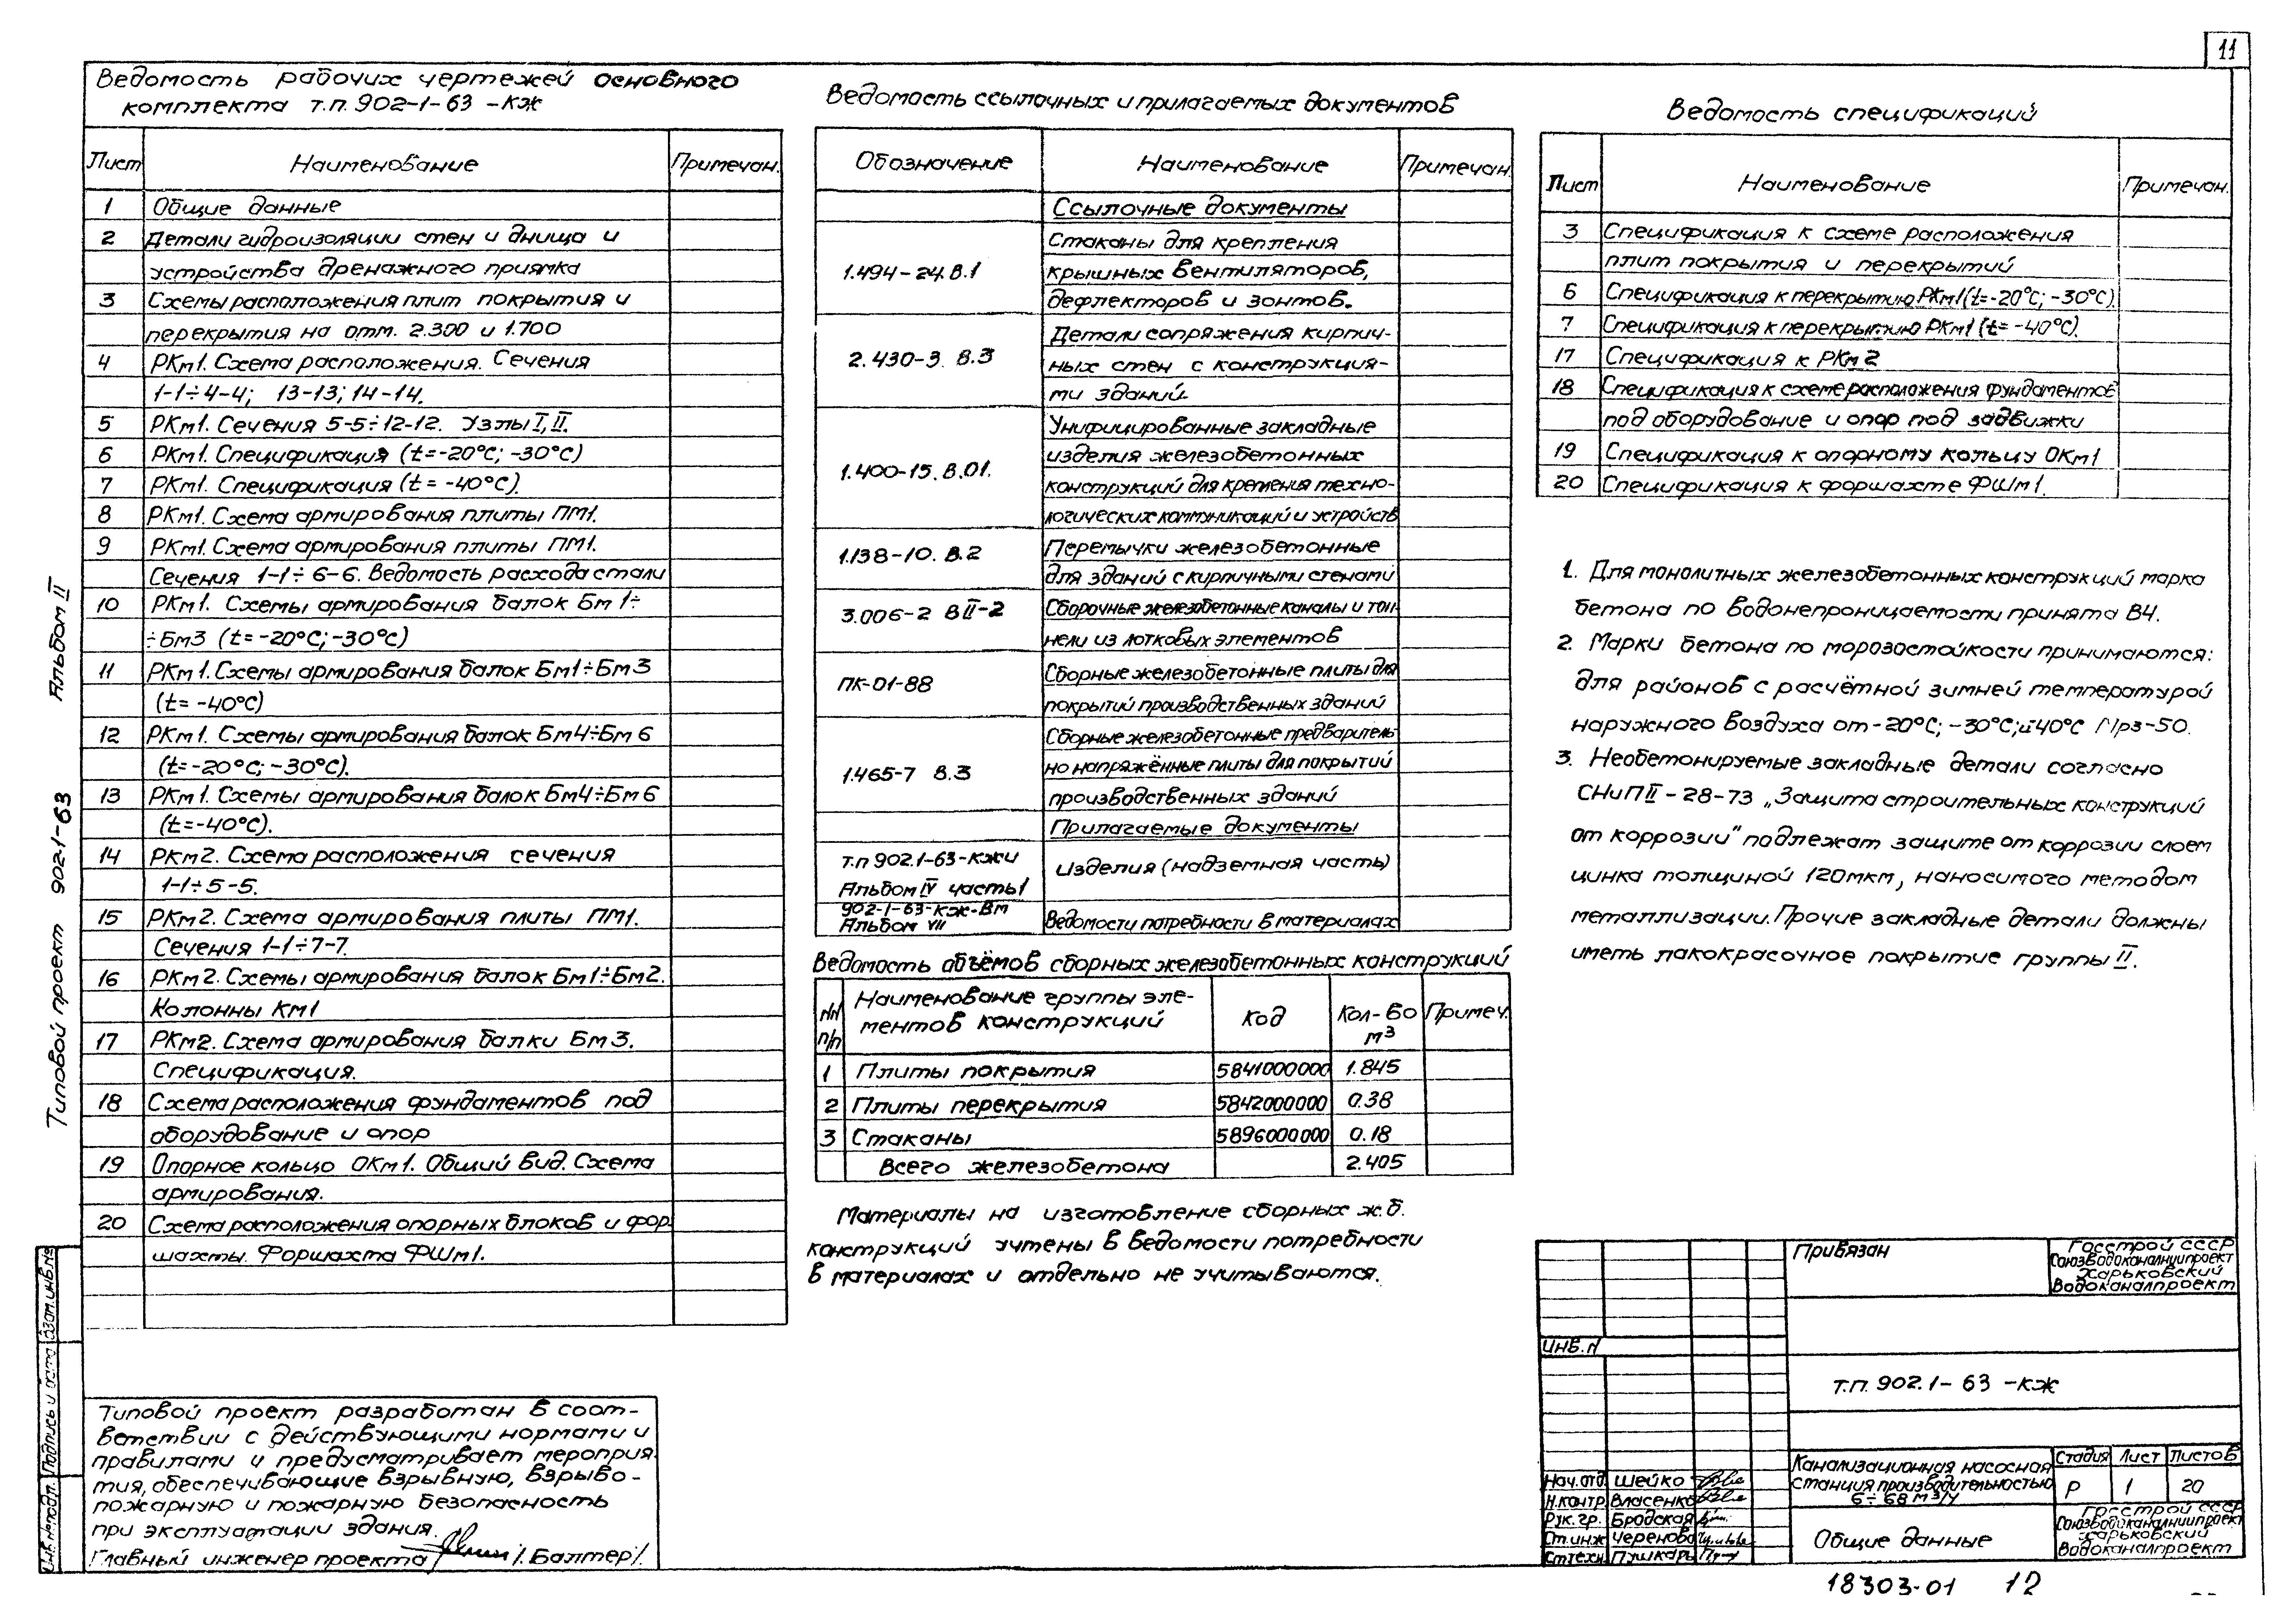 11
Ведомость рабочих чертежей основного
комплекта т.п. 902-1-63 -КЖ
Лист Наименование Примечан.
1 Общие данные
2 Детали гидроизоляции стен и днища и
устройства дренажного приямка
3 Схемы расположения плит покрытия и
перекрытия на отм. 2.300 и 1.700
4 РКм1. Схема расположения. Сечения
1-1÷4-4; 13-13; 14-14.
5 РКм1. Сечения 5-5÷12-12. Узлы I, II.
6 РКм1. Спецификация (t=-20°С; -30°С)
7 РКм1. Спецификация (t= -40°С).
8 РКм1. Схема армирования плиты ПМ1.
9 РКм1. Схема армирования плиты ПМ1.
Сечения 1-1÷6-6. Ведомость расхода стали
10 РКм1. Схемы армирования балок Бм1÷
÷Бм3 (t= -20°С; -30°С)
11 РКм1. Схемы армирования балок Бм1÷Бм3
(t= -40°С)
12 РКм1. Схемы армирования балок Бм4÷Бм6
(t=-20°С; -30°С).
13 РКм1. Схемы армирования балок Бм4÷Бм6
(t=-40°С).
14 РКм2. Схема расположения сечения
1-1÷5-5.
15 РКм2. Схема армирования плиты ПМ1.
Сечения 1-1÷7-7.
16 РКм2. Схемы армирования балок Бм1÷Бм2.
Колонны КМ1
17 РКм2. Схема армирования балки Бм3.
Спецификация.
18 Схема расположения фундаментов под
оборудование и опор
19 Опорное кольцо ОКм1. Общий вид. Схема
армирования.
20 Схема расположения опорных блоков и фор-
шахты. Форшахта ФШм1.
Типовой проект разработан в соот-
ветствии с действующими нормами и
правилами и предусматривает мероприя-
тия, обеспечивающие взрывную, взрыво-
пожарную и пожарную безопасность
при эксплуатации здания.
Главный инженер проекта /Балтер/.
Ведомость ссылочных и прилагаемых документов
Обозначение Наименование Примечан.
Ссылочные документы
1.494-24. В.1 Стаканы для крепления
крышных вентиляторов,
дефлекторов и зонтов.
2.430-3. В.3 Детали сопряжения кирпич-
ных стен с конструкция-
ми зданий
1.400-15. В.01. Унифицированные закладные
изделия железобетонных
конструкций для крепления техно-
логических коммуникаций и устройств
1.138-10. В.2 Перемычки железобетонные
для зданий с кирпичными стенами
3.006-2 В II-2 Сборочные железобетонные каналы и тон-
нели из лотковых элементов
ПК-01-88 Сборные железобетонные плиты для
покрытий производственных зданий
1.465-7 В.3 Сборные железобетонные предваритель-
но напряжённые плиты для покрытий
производственных зданий
Прилагаемые документы
т.п 902.1-63-КЖИ
Альбом IV часть 1 Изделия (надземная часть)
902-1-63-КЖ-ВМ
Альбом VII Ведомости потребности в материалах
Ведомость объёмов сборных железобетонных конструкций
NN п/п Наименование группы эле-
ментов конструкций Код Кол-во м³ Примеч.
1 Плиты покрытия 5841000000 1.845
2 Плиты перекрытия 5842000000 0.38
3 Стаканы 5896000000 0.18
Всего железобетона 2.405
Материалы на изготовление сборных ж.б.
конструкций учтены в ведомости потребности
в материалах и отдельно не учитываются.
Ведомость спецификаций
Лист Наименование Примечан.
3 Спецификация к схеме расположения
плит покрытия и перекрытий
6 Спецификация к перекрытию РКм1 (t=-20°С; -30°С)
7 Спецификация к перекрытию РКм1 (t= -40°С).
17 Спецификация к РКм2
18 Спецификация к схеме расположения фундаментов
под оборудование и опор под задвижки
19 Спецификация к опорному кольцу ОКм1
20 Спецификация к форшахте ФШм1.
1. Для монолитных железобетонных конструкций марка
бетона по водонепроницаемости принята В4.
2. Марки бетона по морозостойкости принимаются:
для районов с расчётной зимней температурой
наружного воздуха от -20°С; -30°С; и 40°С Мрз-50.
3. Необетонируемые закладные детали согласно
СНиП II-28-73 „Защита строительных конструкций
от коррозии" подлежат защите от коррозии слоем
цинка толщиной 120мкм, наносимого методом
металлизации. Прочие закладные детали должны
иметь лакокрасочное покрытие группы II.
Привязан
Госстрой СССР
Союзводоканалниипроект
Харьковский
Водоканалпроект
Инв. N
т.п. 902.1-63 -КЖ
Канализационная насосная
станция производительностью
6÷68 м³/ч
Стадия Лист Листов
Р 1 20
Общие данные
Госстрой СССР
Союзводоканалниипроект
Харьковский
Водоканалпроект
Нач.отд. Шейко
Н.контр. Власенко
Рук.гр. Бродская
Ст.инж. Черенова
Ст.техн. Пушкарь
18303-01 12
Альбом II
Типовой проект 902-1-63
Взам.инв.№
Подпись и дата
Инв.№ подл.